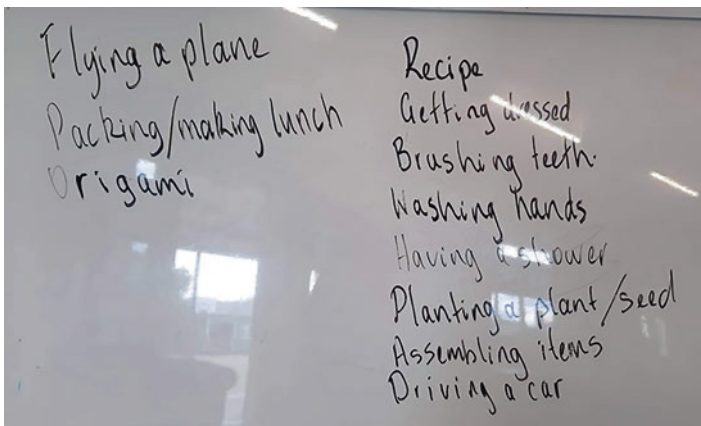 Flying a plane
Packing/making lunch
Origami
Recipe
Getting dressed
Brushing teeth.
Washing hands
Having a shower
Planting a plant/seed
Assembling items
Driving a car